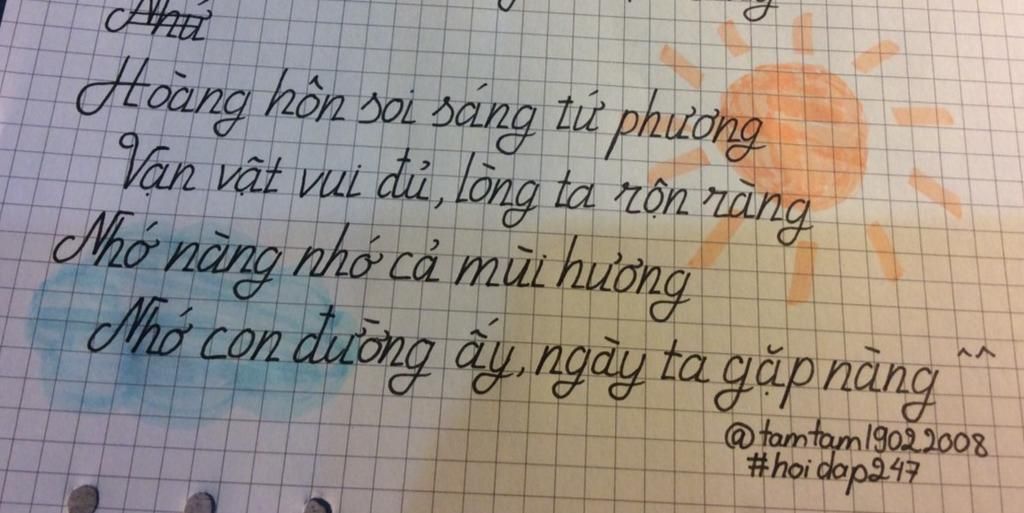 Nhớ
Hoàng hôn soi sáng tứ phương
Vạn vật vui đủ, lòng ta rộn ràng
Nhớ nàng nhớ cả mùi hương
Nhớ con đường ấy, ngày ta gặp nàng ^^
@tamtam19022008
#hoidap247